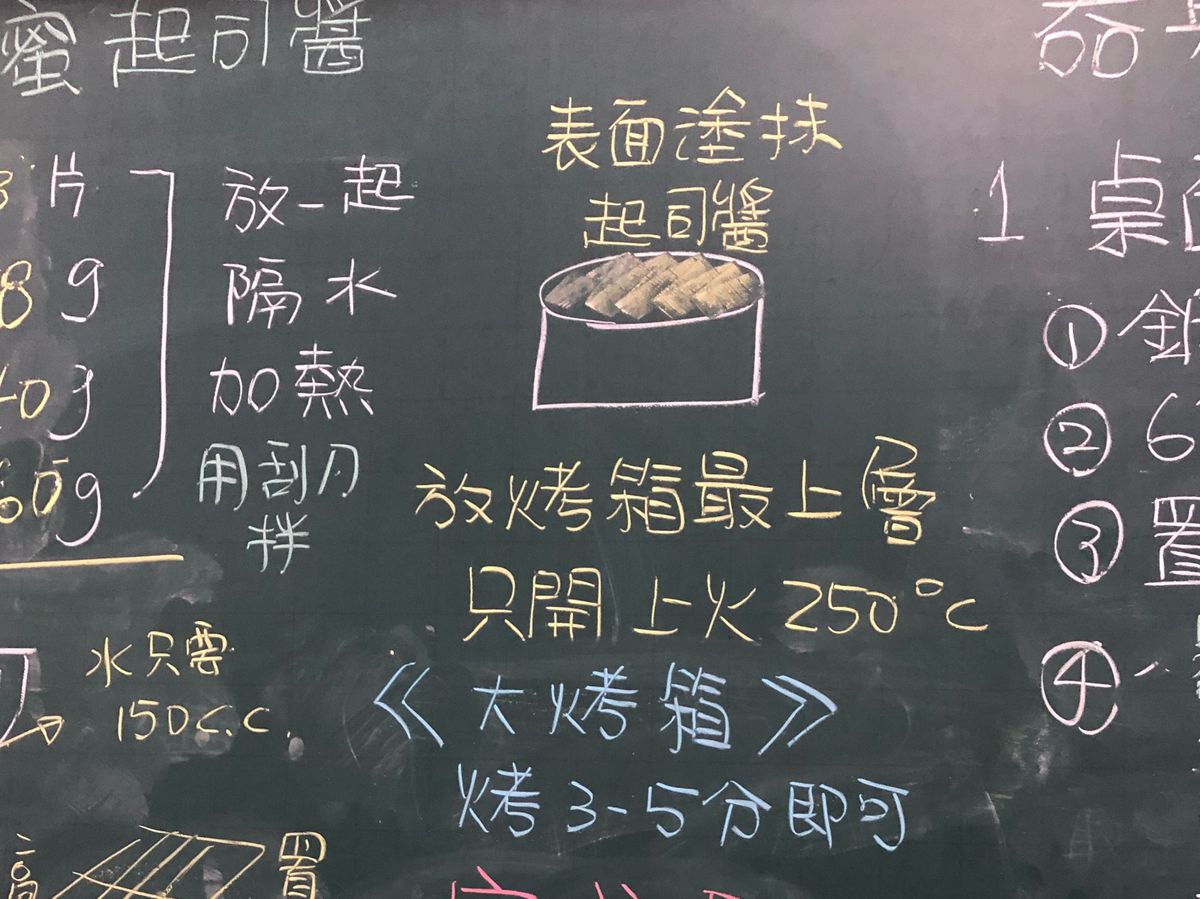 蜜起司醬
片
8g
40g
60g
放一起
隔水
加熱
用刮刀
拌
水只需
150c.c.
高
置
表面塗抹
起司醬
放烤箱最上層
只開上火250°C
《大烤箱》
烤3-5分即可
1 桌
①
② 6
③ 置
④